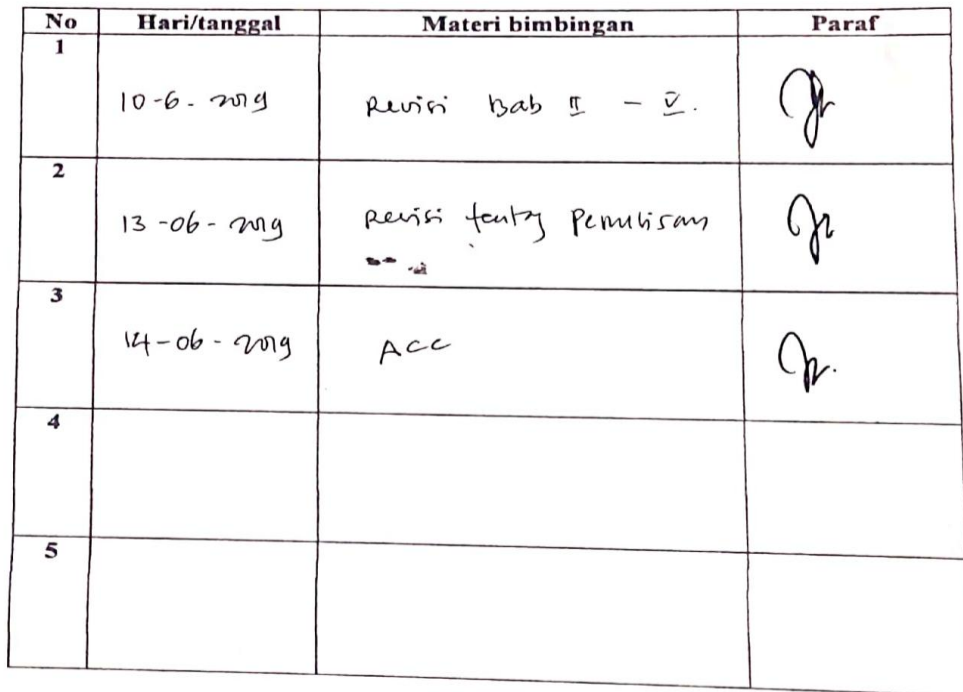 No Hari/tanggal Materi bimbingan Paraf
1
10-6-2019 Revisi Bab II - V.
2
13-06-2019 Revisi tentg Penulisan
3
14-06-2019 ACC
4
5